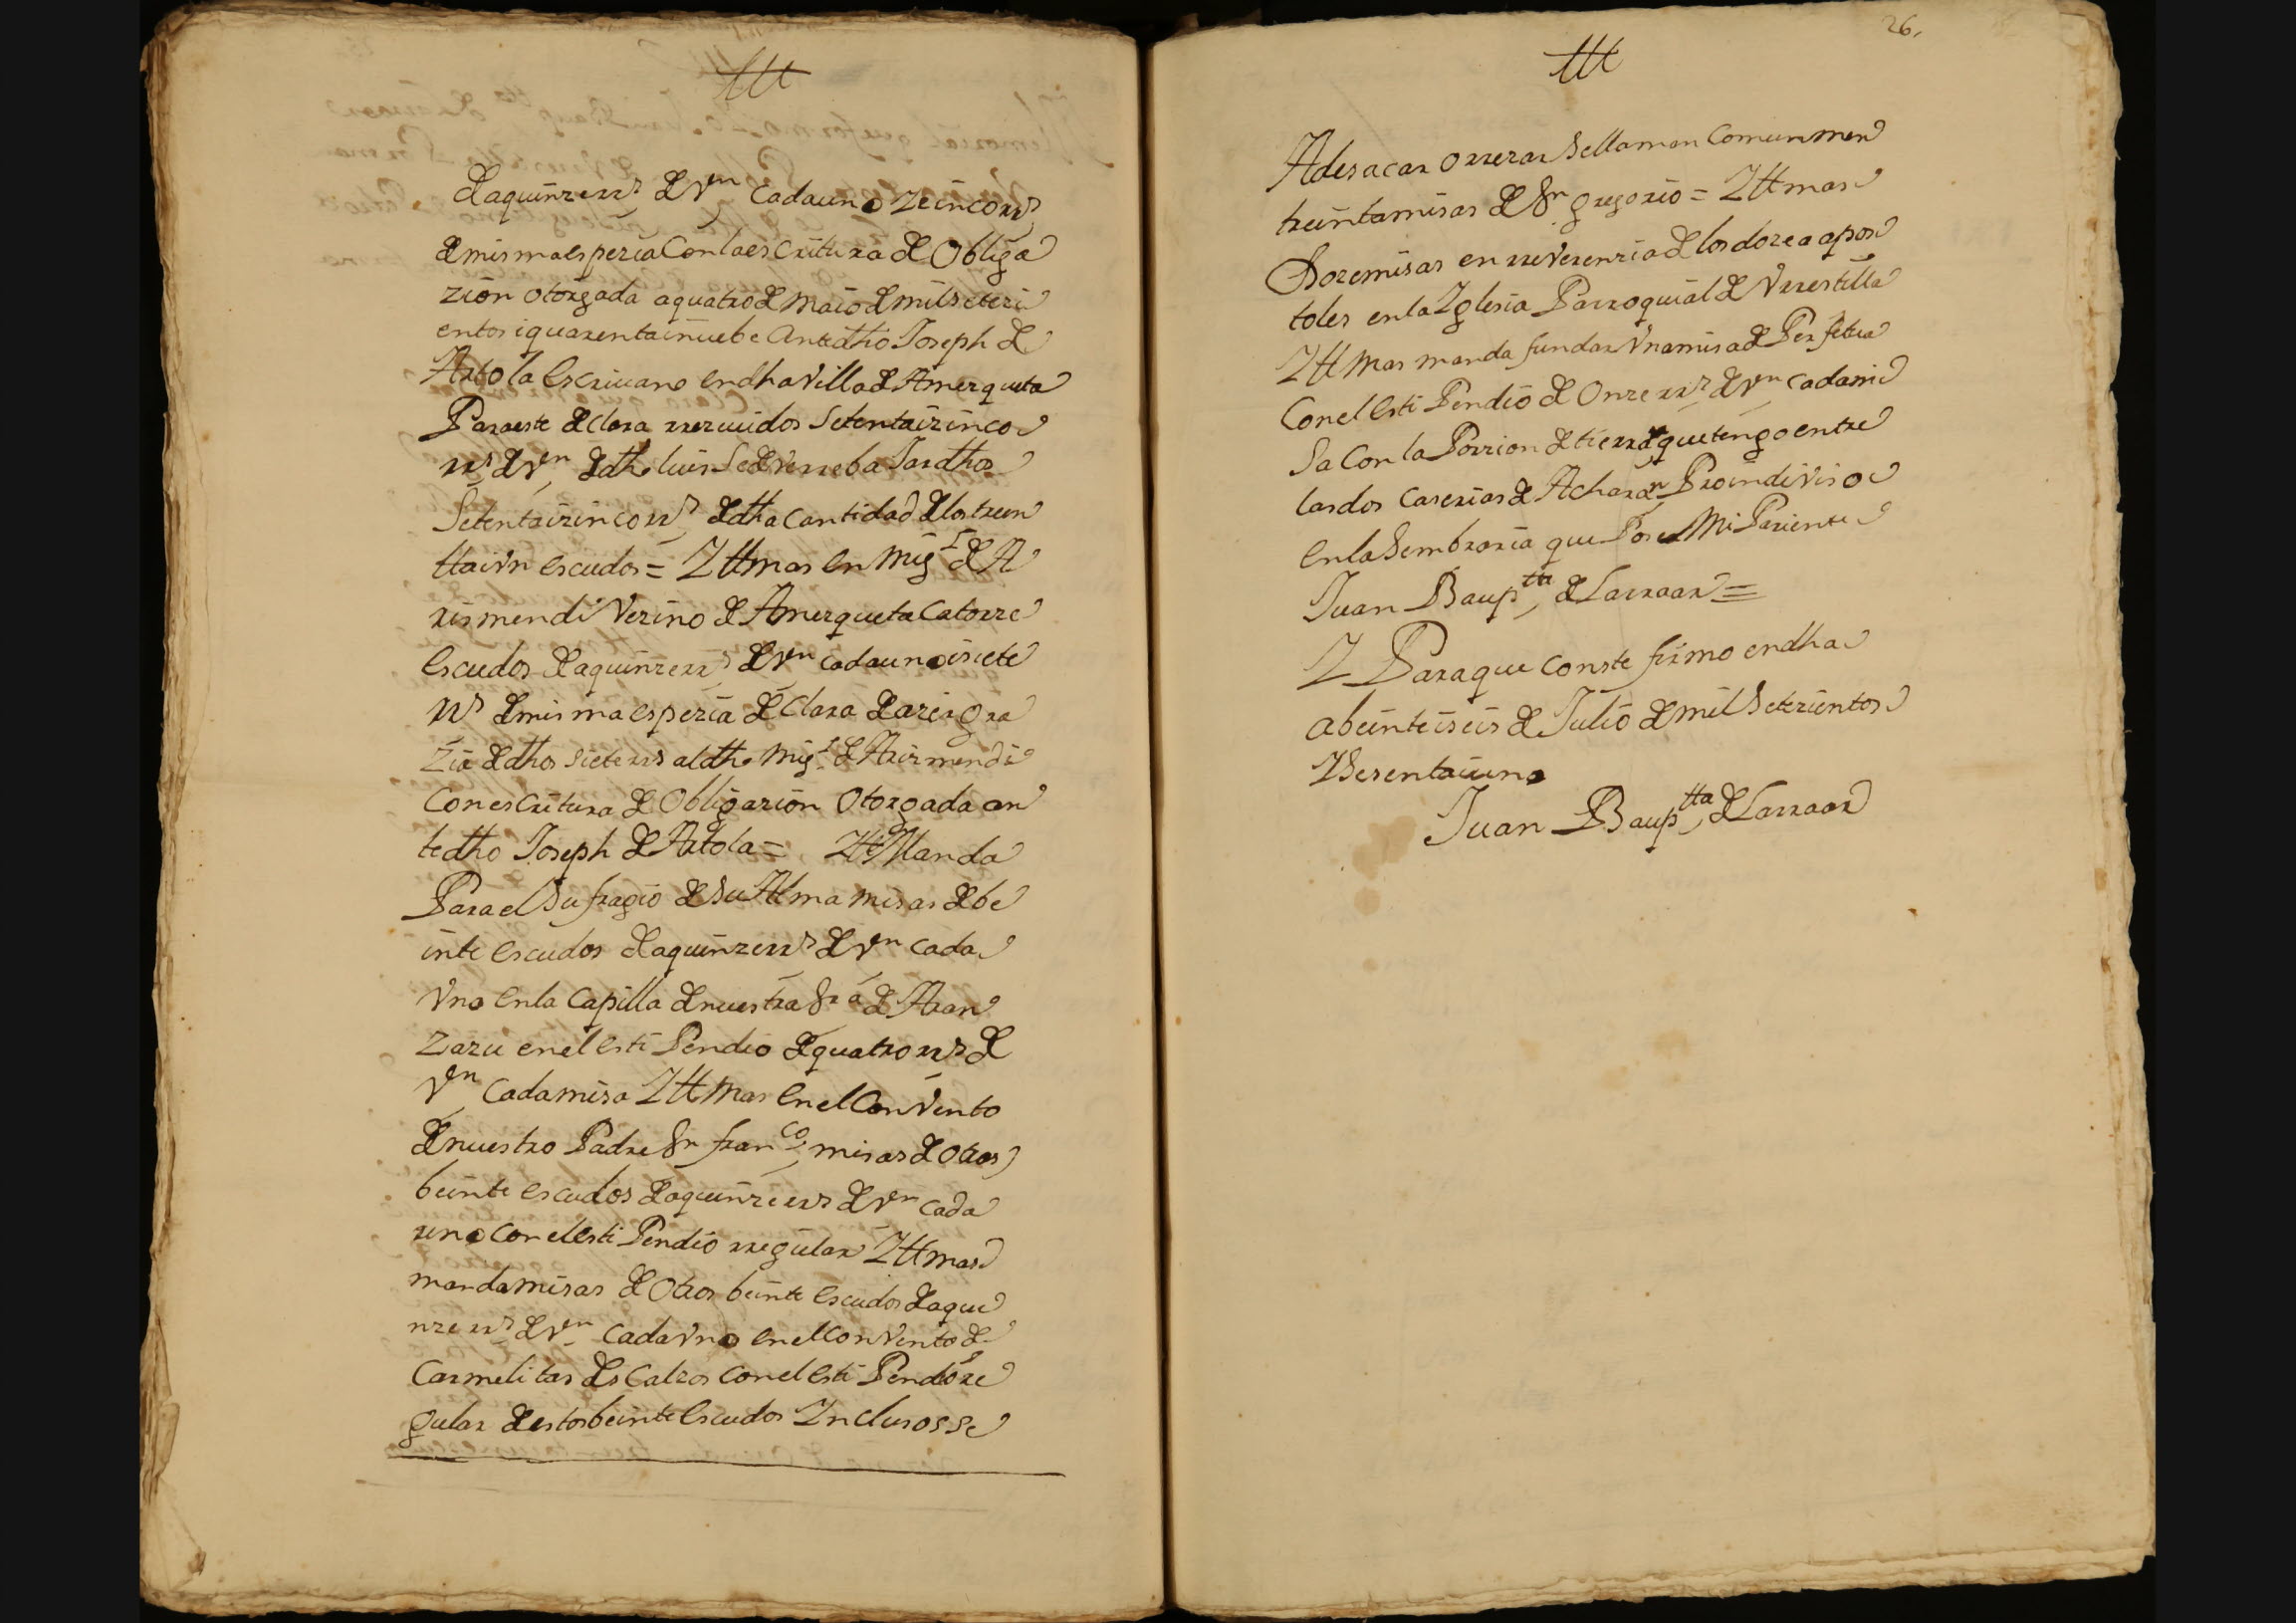 ttt
de aquinze rrs de vn cada uno zeinco rrs
de misma esperia con la escrittura de obliga
zion otorgada a quatro de maio de mil seteci
entos i quarenta i nuebe Ante dho Joseph de
Artola escriuano en dha villa de Amezqueta
Para este declara rrezeuidos Setenta i zinco
rrs de vn de dho luis se de verreba Jardhos
Setenta i zinco rrs de dha cantidad de los treen
tta i vn escudos = Ittmas en Migl de A
rismendi Vezino de Amezqueta catorze
escudos de aquinze rrs de vn cada uno i siete
rrs de misma esperia declara de azer gra
zia de dhos siete rrs al dho Migl de Arismendi
con escritura de obligazion otorgada an
te dho Joseph de Artola = Itt Manda
Para el Sufragio de su Alma misas de be
inte escudos de aquinze rrs de vn cada
vno en la Capilla de nuestra Sra de Aran
zazu en el esti Pendio de quatro rrs de
vn cada misa Itt mas en el Convento
de nuestro Padre Sn franco misas de otros
beinte escudos de aquinze rrs de vn cada
uno con el esti Pendio rregular Itt mas
manda misas de otros beinte escudos de aqui
nze rrs de vn cada vno en el convento de
Carmelitas descalzos con el esti Pendio re
gular de estos beinte escudos Inclusos se
26.
ttt
A de sacar o rrezar se llaman comunmen
treinta misas de Sn gregorio = Itt mas
Doze misas en rreverenzia de los doze a apos
toles en la Iglesia Parroquial de Vrrestilla
Itt mas manda fundar vna misa de Perpetua
con el esti Pendio de onze rrs de vn cada mi
sa con la Porzion de tierra que tengo entre
las dos caserias de Acharan Proindiviso
en la Sembraria que Posee Mi Pariente
Juan Bauptta de Larraar =
I Para que conste firmo en dha
a beinte i seis de Julio de mil Setezientos
I sesenta i uno
Juan Bauptta de Larraar